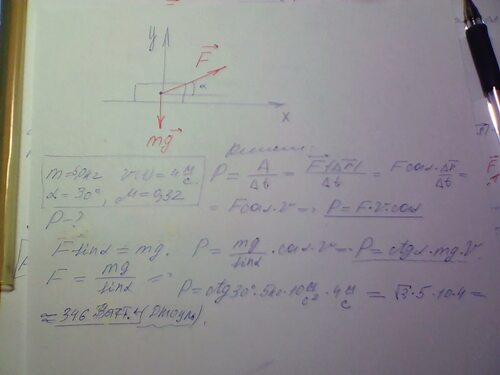 y
F⃗
α
x
mg⃗
Решение:
m=50кг v(t)=4 м/с
α=30°, μ=0,32
P-?
P = A/Δt = F⃗·|Δr⃗|/Δt = Fcosα·Δr/Δt =
= Fcosα·v => P=F·v·cosα
Fsinα = mg. P = mg/sinα · cosα·v => P=ctgα·mg·v.
F = mg/sinα =>
P=ctg30°·5кг·10 м/с²·4 м/с = √3·5·10·4 =
≈ 346 Ватт.ч (Джоуль).